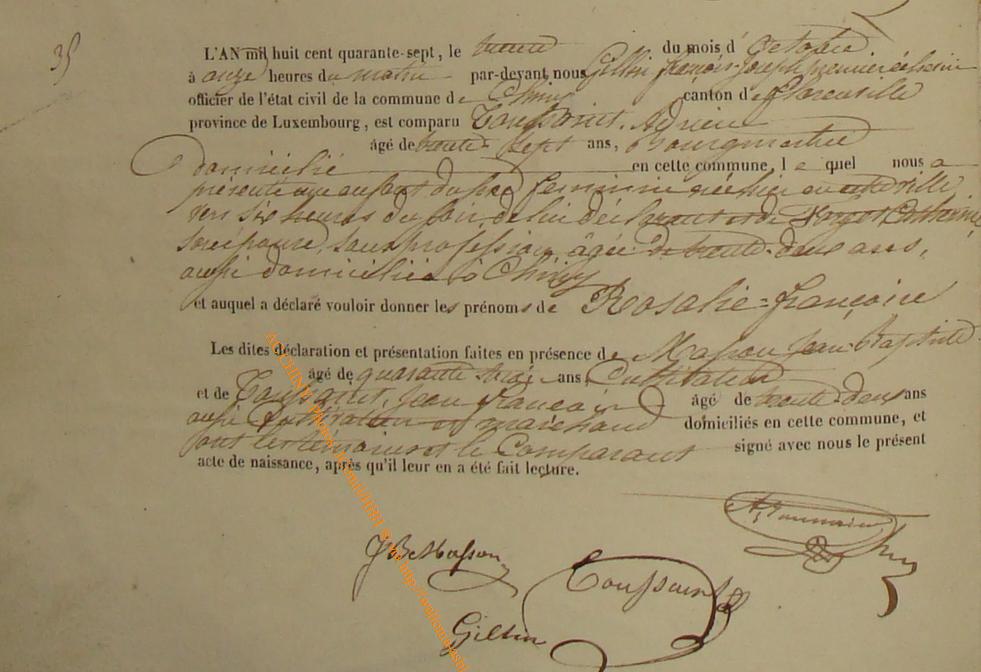 35
L'AN mil huit cent quarante-sept, le trente du mois d'Octobre
à onze heures du matin par-devant nous Gillin françois-Joseph premier échevin
officier de l'état civil de la commune de Chiny canton de florenville
province de Luxembourg, est comparu Toussaint, Adrien
âgé de trente-sept ans, Bourgmestre
domicilié en cette commune, lequel nous a
présenté un enfant du sexe féminin née hier en cette ville
vers six heures du soir de lui déclarant et de Catherine
son épouse, sans profession, âgée de trente-deux ans,
aussi domiciliée à Chiny
et auquel a déclaré vouloir donner les prénoms de Rosalie=françoise
Les dites déclaration et présentation faites en présence de Masson Jean-Baptiste
âgé de quarante trois ans, Cultivateur
et de Toussaint, Jean françois âgé de trente-deux ans
aussi Cultivateur et marchand domiciliés en cette commune, et
ont les témoins et le Comparant signé avec nous le présent
acte de naissance, après qu'il leur en a été fait lecture.
A Toussaint
JB Masson
Toussaint
Gillin